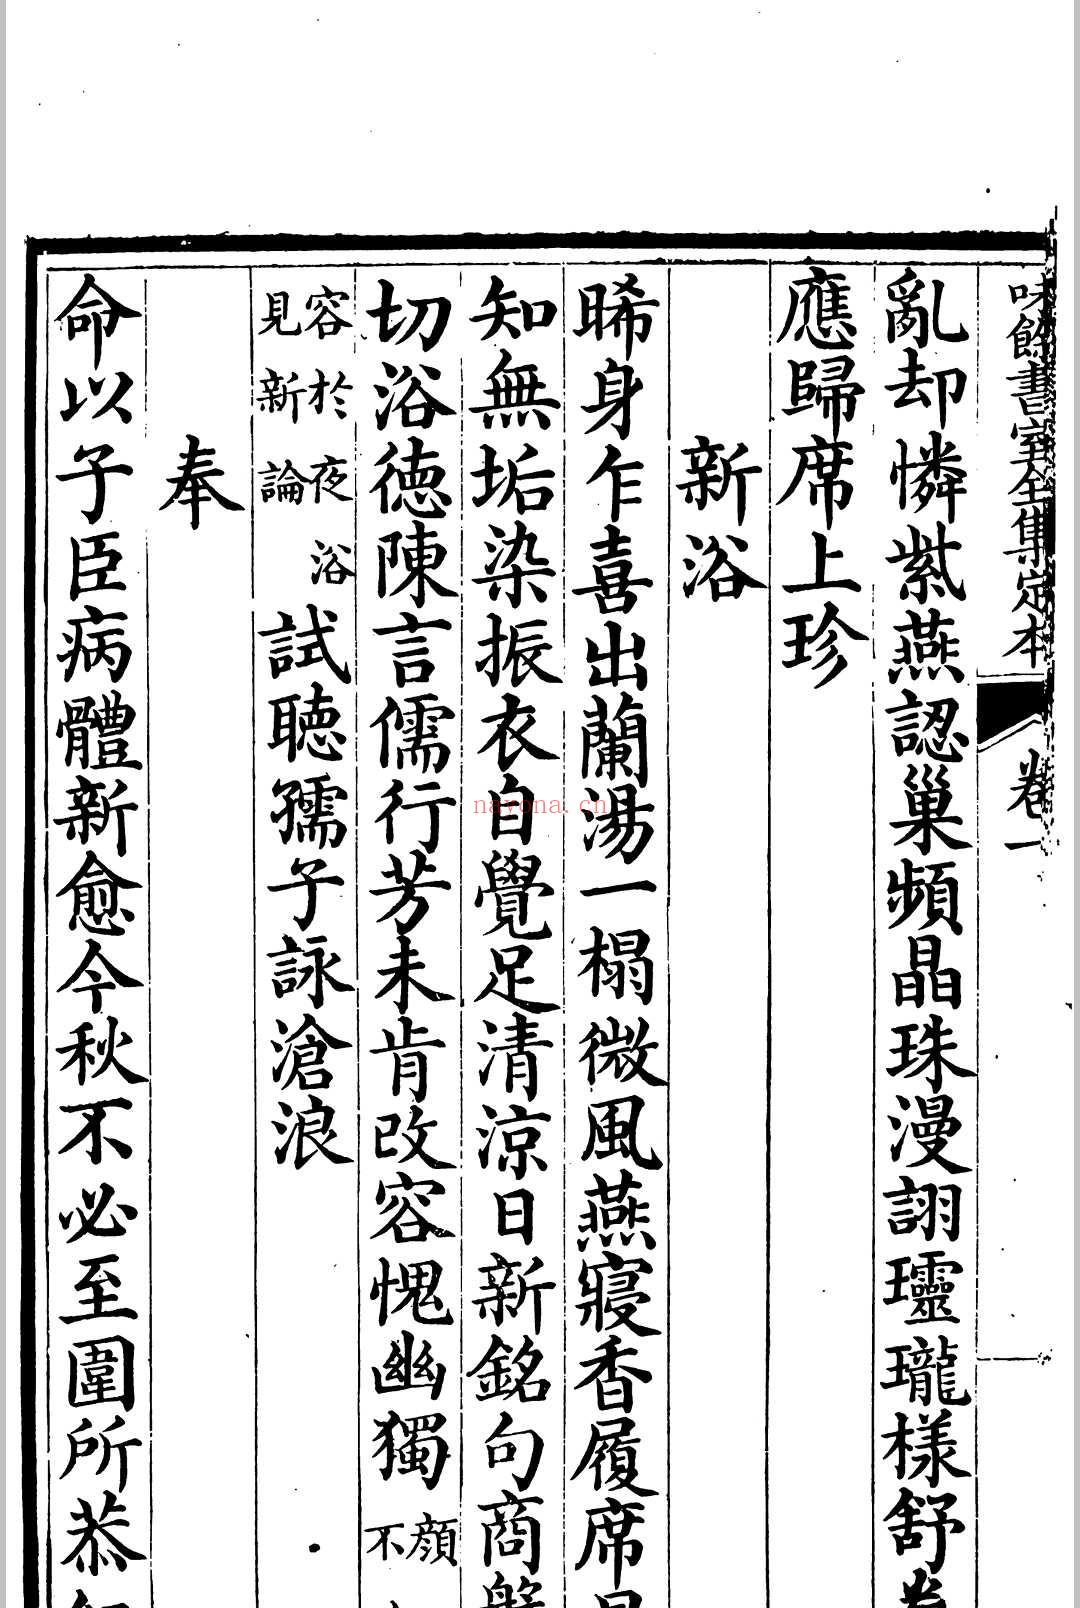 味餘書室全集定本 卷一
亂却憐紫燕認巢頻晶珠漫詡瓏瓏樣舒卷
應歸席上珍
新浴
晞身乍喜出蘭湯一榻微風燕寢香履席
知無垢染振衣自覺足清涼日新銘句商盤
切浴德陳言儒行芳未肯改容愧幽獨顏不
容於夜浴
見新論
試聽孺子詠滄浪
奉
命以子臣病體新愈今秋不必至圍所恭
nayona.cn